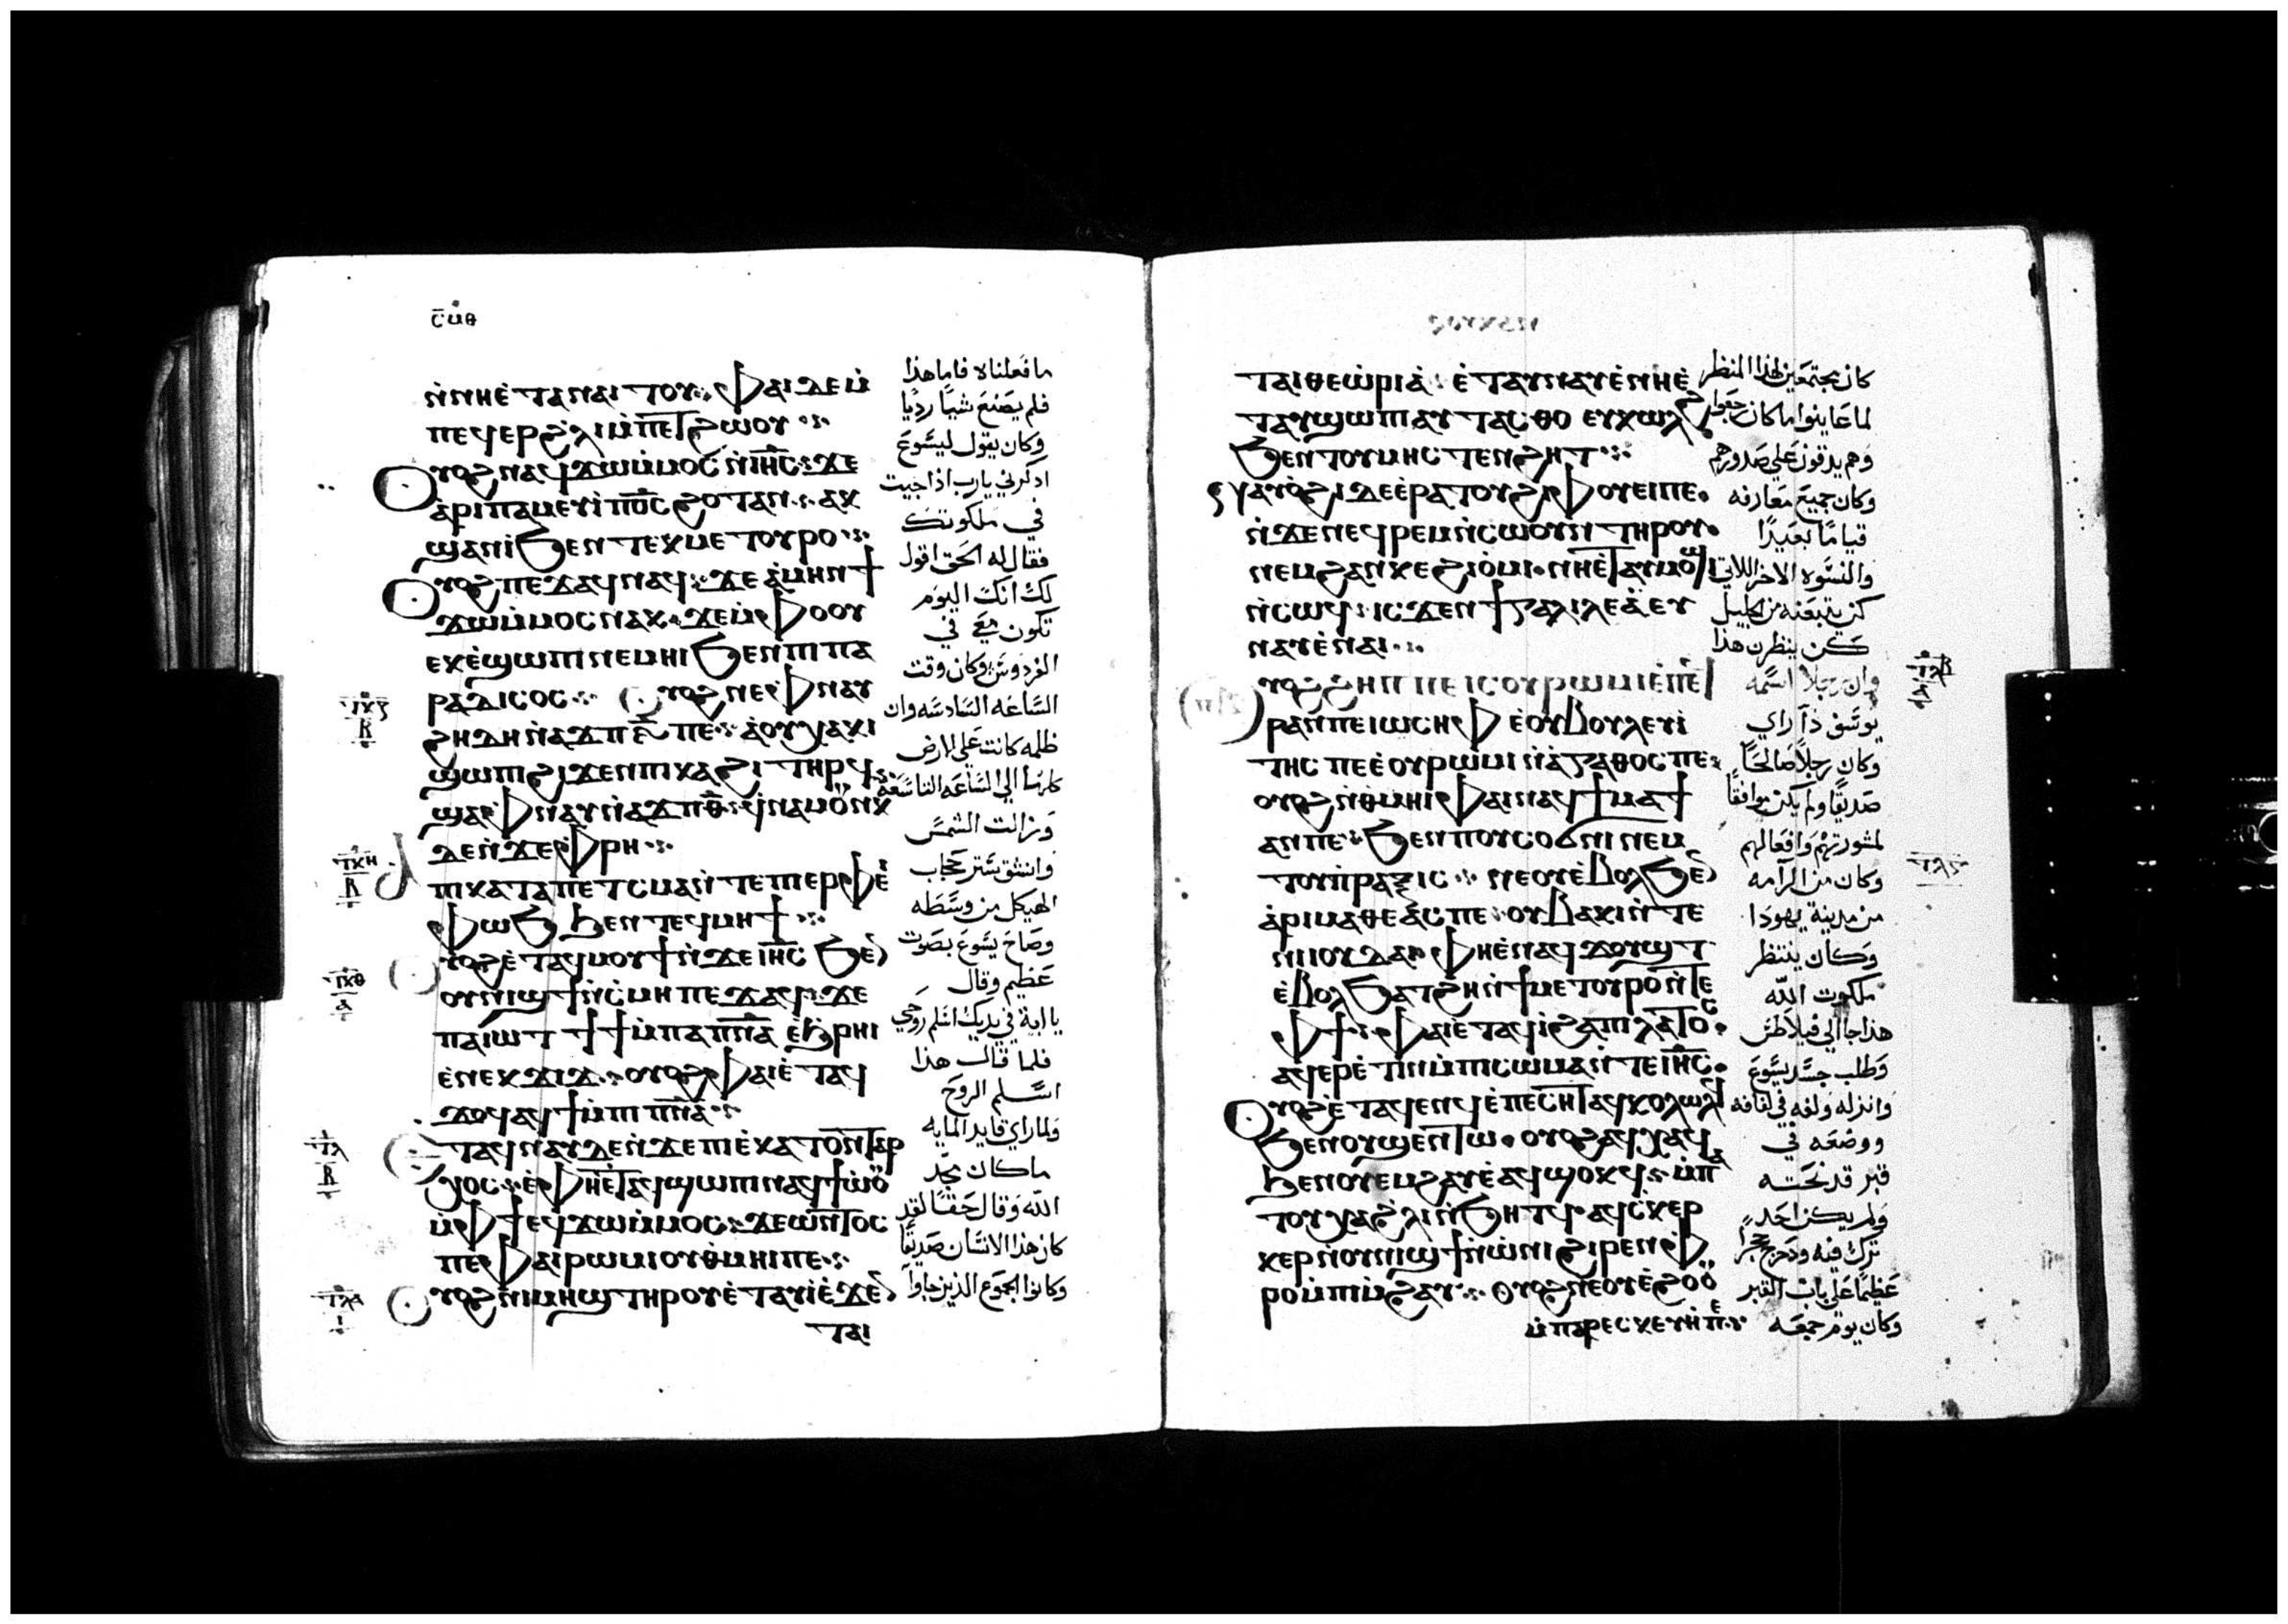 ⲥ̅ⲙⲑ
ⲛ̀ⲛⲏⲉ̀ⲧⲁⲛⲁⲓⲧⲟⲩ ⲫⲁⲓⲇⲉⲙ̀
ⲡⲉϥⲉⲣϩ̀ⲗⲓⲙ̀ⲡⲉⲧϩⲱⲟⲩ
ⲟⲩⲟϩⲛⲁϥϫⲱⲙ̀ⲙⲟⲥⲛ̀ⲓⲏ̅ⲥ̅ ϫⲉ
ⲁ̀ⲣⲓⲡⲁⲙⲉⲩⲓ̀ⲡⲟ̅ⲥ̅ϩⲟⲧⲁⲛ ⲁⲕ
ϣⲁⲛⲓ̀ϧⲉⲛⲧⲉⲕⲙⲉⲧⲟⲩⲣⲟ
ⲟⲩⲟϩⲡⲉϫⲁϥⲛⲁϥ ϫⲉⲁ̀ⲙⲏⲛϯ
ϫⲱⲙ̀ⲙⲟⲥⲛⲁⲕ ϫⲉⲙ̀ⲫⲟⲟⲩ
ⲉⲕⲉ̀ϣⲱⲡⲓⲛⲉⲙⲏⲓϧⲉⲛⲡⲓⲡⲁ
ⲣⲁⲇⲓⲥⲟⲥ ⲟⲩⲟϩⲛⲉⲫⲛⲁⲩ
ϩⲏⲇⲏⲛ̀ⲁϫⲡ ⲋ̅ ⲡⲉ ⲁ̀ⲟⲩⲭⲁⲕⲓ
ϣⲱⲡⲓϩⲓϫⲉⲛⲡⲓⲕⲁϩⲓⲧⲏⲣϥ
ϣⲁⲫⲛⲁⲩⲛ̀ⲁϫⲡⲑ̅ ϥ̀ⲛⲁⲙⲟⲩⲛⲕ
ϫⲉⲛ̀ϫⲉⲫⲣⲏ
ⲡⲓⲕⲁⲧⲁⲡⲉⲧⲥⲙⲁⲛ̀ⲧⲉⲡⲓⲉⲣⲫⲉⲓ̀
ⲫⲱϧ ϧⲉⲛⲧⲉϥⲙⲏϯ
ⲟⲩⲟϩⲉ̀ⲧⲁϥⲙⲟⲩϯⲛ̀ϫⲉⲓⲏ̅ⲥ̅ ϧⲉⲛ
ⲟⲩⲛⲓϣϯⲛ̀ⲥ̀ⲙⲏⲡⲉϫⲁϥ ϫⲉ
ⲡⲁⲓⲱⲧ ϯϯⲙ̀ⲡⲁⲡ̅ⲛ̅ⲁ̅ ⲉ̀ϧ̀ⲣⲏⲓ
ⲉ̀ⲛⲉⲕϫⲓϫ ⲟⲩⲟϩⲫⲁⲓⲉ̀ⲧⲁϥ
ϫⲟϥⲁϥϯⲙ̀ⲡⲓⲡ̅ⲛ̅ⲁ̅
ⲉⲧⲁϥⲛⲁⲩⲇⲉⲛ̀ϫⲉⲡⲓⲉ̀ⲕⲁⲧⲟⲛⲧⲁⲣ
ⲭⲟⲥ ⲉ̀ⲫⲏⲉ̀ⲧⲁϥϣⲱⲡⲓⲛⲁϥϯⲱ̀ⲟⲩ
ⲙ̀ⲫϯⲉϥϫⲱⲙ̀ⲙⲟⲥ ϫⲉⲱⲛⲧⲟⲥ
ⲡⲉⲫⲁⲓⲣⲱⲙⲓⲟⲩⲑ̀ⲙⲏⲓⲡⲉ
ⲟⲩⲟϩⲛⲓⲙⲏϣⲧⲏⲣⲟⲩⲉ̀ⲧⲁⲩⲓ̀ⲉ̀ϫⲉⲛ
ⲧⲁⲓ
ما فعلناه فاما هذا
فلم يصنع شيا رديا
وكان يقول ليسوع
اذكرني يارب اذا جيت
في ملكوتك
فقال له الحق اقول
لك انك اليوم
تكون معي في
الفردوس وكان وقت
الساعه السادسه وان
ظلمه كانت على الارض
كلها الي الساعه التاسعه
وزالت الشمس
وانشق ستر حجاب
الهيكل من وسطه
وصاح يسوع بصوت
عظيم وقال
يا ابة في يديك اسلم روحي
فلما قال هذا
اسلم الروح
ولما راي قايد المايه
ما كان مجد
الله وقال حقا لقد
كان هذا الانسان صديقا
وكانوا الجموع الذين جاوا
ⲧ̅ⲕ̅ⲍ̅
ⲃ
ⲧ̅ⲕ̅ⲏ̅
ⲃ
ⲧ̅ⲕ̅ⲑ̅
ⲁ
ⲧ̅ⲗ̅
ⲃ
ⲧ̅ⲗ̅ⲁ̅
ⲓ
ⲧⲁⲓⲑⲉⲱ̀ⲣⲓⲁ̀ ⲉ̀ⲧⲁⲩⲛⲁⲩⲉ̀ⲛⲏⲉ̀
ⲧⲁⲩϣⲱⲡⲓⲁⲩⲧⲁⲥⲑⲟ ⲉⲩⲕⲱⲗϩ
ϧⲉⲛⲧⲟⲩⲙⲉⲥⲧⲉⲛϩⲏⲧ
ⲛⲁⲩⲟ̀ϩⲓⲇⲉⲉ̀ⲣⲁⲧⲟⲩϩⲓⲫⲟⲩⲉⲓⲡⲉ
ⲛ̀ϫⲉⲛⲉϥⲣⲉⲙⲛ̀ⲥⲱⲟⲩⲛⲧⲏⲣⲟⲩ
ⲛⲉⲙϩⲁⲛⲕⲉϩⲓⲟ̀ⲙⲓ ⲛⲏⲉ̀ⲧⲁⲩⲙⲟϣⲓ
ⲛ̀ⲥⲱϥ ⲓⲥϫⲉⲛϯⲅⲁⲗⲓⲗⲉⲁ̀ⲉⲩ
ⲛⲁⲩⲉ̀ⲛⲁⲓ
ⲟⲩⲟϩϩⲏⲡⲡⲉⲓⲥⲟⲩⲣⲱⲙⲓⲉ̀ⲡⲉϥ
ⲣⲁⲛⲡⲉⲓⲱⲥⲏⲫ ⲉ̀ⲟⲩⲃⲟⲩⲗⲉⲩⲧ
ⲧⲏⲥⲡⲉⲉ̀ⲟⲩⲣⲱⲙⲓⲛ̀ⲁ̀ⲅⲁⲑⲟⲥⲡⲉ
ⲟⲩⲟϩⲛ̀ⲑⲙⲏⲓ ⲫⲁⲓⲛⲁϥϯⲙⲁϯ
ⲁⲛⲡⲉ ϧⲉⲛⲡⲟⲩⲥⲟϭⲛⲓⲛⲉⲙ
ⲧⲟⲩⲡ̀ⲣⲁⲝⲓⲥ ⲛⲉⲟⲩⲉ̀ⲃⲟⲗϧⲉⲛ
ⲁ̀ⲣⲓⲙⲁⲑⲉⲁ̀ⲥⲡⲉ ⲟⲩⲃⲁⲕⲓⲛ̀ⲧⲉ
ⲛⲓⲟⲩⲇⲁ ⲫⲏⲉ̀ⲛⲁϥϫⲟⲩϣⲧ
ⲉ̀ⲃⲟⲗϧⲁⲧϩⲏⲛ̀ϯⲙⲉⲧⲟⲩⲣⲟⲛ̀ⲧⲉ
ⲫϯ ⲫⲁⲓⲉ̀ⲧⲁϥⲓ̀ϩⲁⲡⲓⲗⲁⲧⲟⲥ
ⲁϥⲉⲣⲉ̀ⲧⲓⲛⲙ̀ⲡⲓⲥⲱⲙⲁⲛ̀ⲧⲉⲓⲏ̅ⲥ̅
ⲟⲩⲟϩⲉ̀ⲧⲁϥⲉⲛϥⲉ̀ⲡⲉⲥⲏⲧⲁϥⲕⲟⲗⲱⲗϥ
ϧⲉⲛⲟⲩϣⲉⲛⲧⲱ ⲟⲩⲟϩⲁϥⲭⲁϥ
ϧⲉⲛⲟⲩⲉⲙϩⲁⲩⲉ̀ⲁϥϣⲟⲕϥ ⲙ̀ⲡⲁ
ⲧⲟⲩⲭⲁϩ̀ⲗⲓⲛ̀ϧⲏⲧϥ ⲁϥⲥ̀ⲕⲉⲣ
ⲕⲉⲣⲛ̀ⲟⲩⲛⲓϣϯⲛ̀ⲱ̀ⲛⲓϩⲓⲣⲉⲛⲫ
ⲣⲟⲙ̀ⲡⲓⲙ̀ϩⲁⲩ ⲟⲩⲟϩⲛⲉⲟⲩⲉ̀ϩⲟⲟⲩ
ⲙ̀ⲡⲁⲣⲁⲥⲕⲉⲩⲏⲡⲉ
كان مجتمعين لهذا المنظر
لما عاينوا ما كان رجعوا
وهم يدقون علي صدورهم
وكان جميع معارفه
قياما بعيدا
والنسوه الاخر اللاتي
كن يتبعنه من الجليل
كن ينظرن هذا
وان رجلا اسمه
يوسف ذا راي
وكان رجلا صالحا
صديقا ولم يكن موافقا
لمشورتهم وافعالهم
وكان من الرامه
من مدينة يهودا
وكان ينتظر
ملكوت الله
هذا جا الي فيلاطس
وطلب جسد يسوع
وانزله ولفه في لفافه
ووضعه في
قبر قد نحته
ولم يكن احد
ترك فيه ودحرج حجرا
عظيما على باب القبر
وكان يوم جمعه
ⲧ̅ⲗ̅ⲃ̅
ⲁ